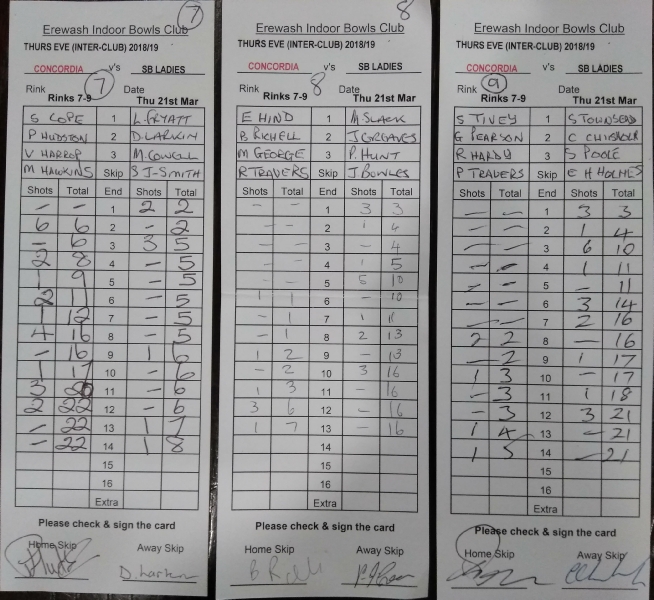 7
Erewash Indoor Bowls Club
THURS EVE (INTER-CLUB) 2018/19
CONCORDIA v's SB LADIES
Rink 7 Date
Rinks 7-9 Thu 21st Mar
S COPE 1 L. PYATT
P HUDSTON 2 D. LARKIN
V HARROP 3 M. COWELL
M HAWKINS Skip B J-SMITH
Shots Total End Shots Total
- - 1 2 2
6 6 2 - 2
- 6 3 3 5
2 8 4 - 5
1 9 5 - 5
2 11 6 - 5
1 12 7 - 5
4 16 8 - 5
- 16 9 1 6
1 17 10 - 6
3 20 11 - 6
2 22 12 - 6
- 22 13 1 7
- 22 14 1 8
15
16
Extra
Please check & sign the card
Home Skip Away Skip
D. Larkin
8
Erewash Indoor Bowls Club
THURS EVE (INTER-CLUB) 2018/19
CONCORDIA v's SB LADIES
Rink 8 Date
Rinks 7-9 Thu 21st Mar
E HIND 1 M SLACK
B RICHELL 2 J GREAVES
M GEORGE 3 P. HUNT
R TRAVERS Skip J BOWLES
Shots Total End Shots Total
- - 1 3 3
- - 2 1 4
- - 3 - 4
- - 4 1 5
- - 5 5 10
1 1 6 - 10
- 1 7 1 11
- 1 8 2 13
1 2 9 - 13
- 2 10 3 16
1 3 11 - 16
3 6 12 - 16
1 7 13 - 16
14
15
16
Extra
Please check & sign the card
Home Skip Away Skip
Erewash Indoor Bowls Club
THURS EVE (INTER-CLUB) 2018/19
CONCORDIA v's SB LADIES
Rink 9 Date
Rinks 7-9 Thu 21st Mar
S TIVEY 1 S TOWNSEND
G PEARSON 2 C CHISHOLM
R HARDY 3 S POOLE
P TRAVERS Skip E H HOLMES
Shots Total End Shots Total
- - 1 3 3
- - 2 1 4
- - 3 6 10
- - 4 1 11
- - 5 - 11
- - 6 3 14
- - 7 2 16
2 2 8 - 16
- 2 9 1 17
1 3 10 - 17
- 3 11 1 18
- 3 12 3 21
1 4 13 - 21
1 5 14 - 21
15
16
Extra
Please check & sign the card
Home Skip Away Skip